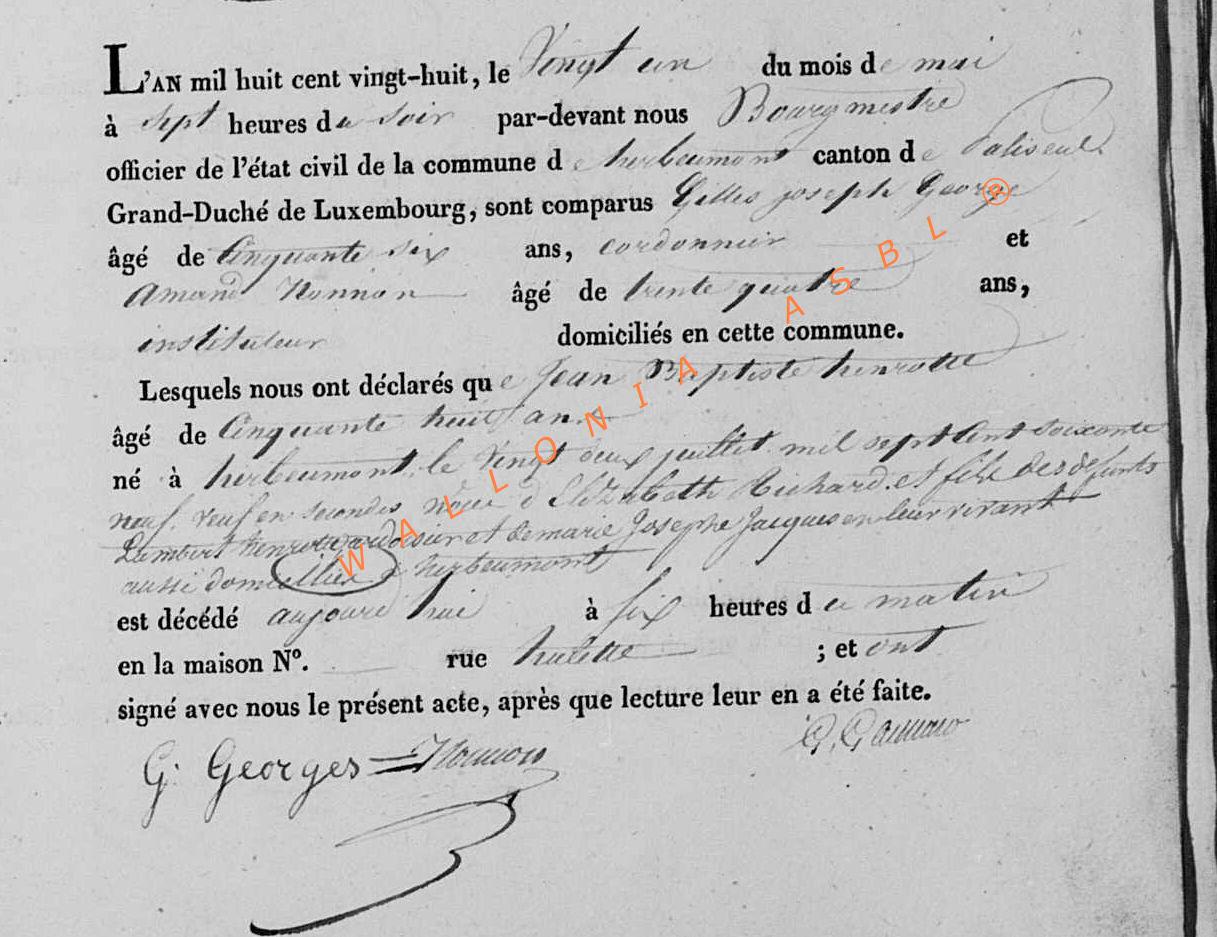 L'AN mil huit cent vingt-huit, le Vingt un du mois de mai
à sept heures du soir par-devant nous Bourgmestre
officier de l'état civil de la commune de herbeumont canton de Paliseul
Grand-Duché de Luxembourg, sont comparus Gilles joseph George
âgé de Cinquante six ans, cordonnier et
Amand Nonnon âgé de trente quatre ans,
instituteur domiciliés en cette commune.
Lesquels nous ont déclarés que Jean Baptiste henrotte
âgé de Cinquante huit ans
né à herbeumont le Vingt deux juillet mil sept Cent soixante
neuf. veuf en secondes noces d'Elizabeth Richard. et fils des defunts
Lambert henrotte ardoisier et de marie Josephe Jacques en leur vivant
aussi domiciliés à herbeumont
est décédé aujourd'hui à six heures du matin
en la maison Nº. rue hulette ; et ont
signé avec nous le présent acte, après que lecture leur en a été faite.
G. Georges Nonnon
WALLONIA ASBL ®